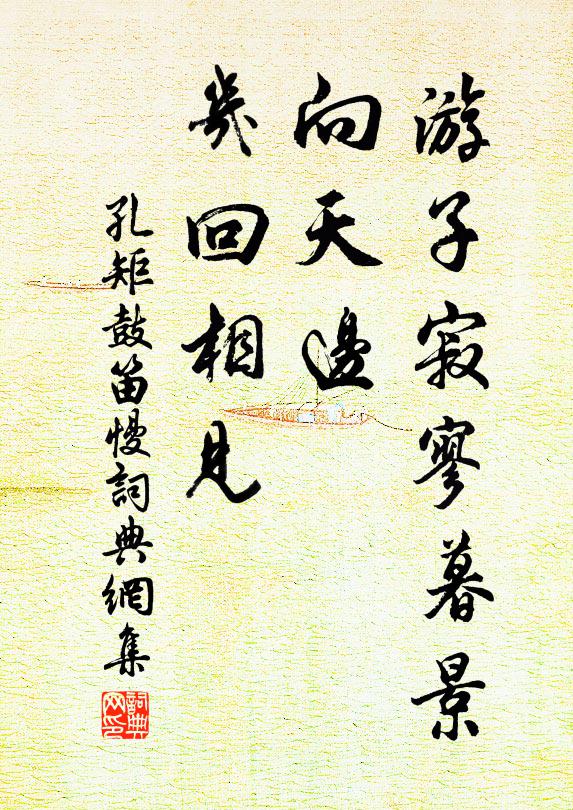 游子寂寥暮景
向天邊
幾回相見
孔矩鼓笛慢詞典網集
詞典
网印